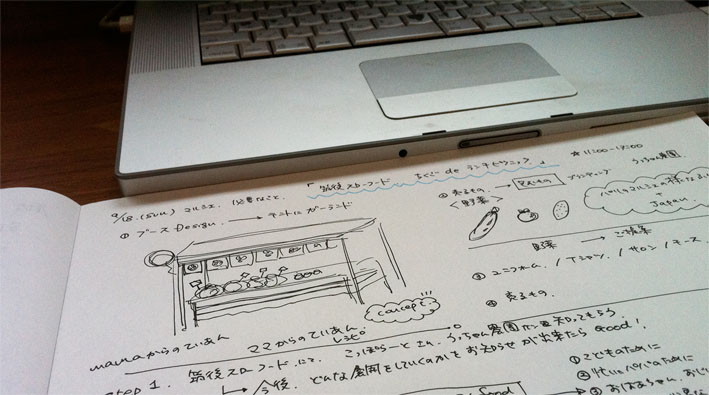 9/18.(SUN) マルシェ 必要なこと.
「筑後スローフード ちくご de ランチピクニック」
* 11:00-17:00
うっちゃん農園
① ブース Design. → テントに ガーランド
② 売るもの.
<野菜>
パリのマルシェの様な
+
Japan.
野菜 → ご提案
③ ユニフォーム. / Tシャツ. / サロン / ナース.
④ 売るもの.
concept!!!
mamaからのていあん
ママからのていあん
レシピ
Step 1. 筑後スローフード にて. さん. うっちゃん農園 知ってもらう.
今後. どんな展開をしていくのかもお知らせが出来たら Good!
① こどものために
② 忙しいパパのために
③ おばあちゃん.